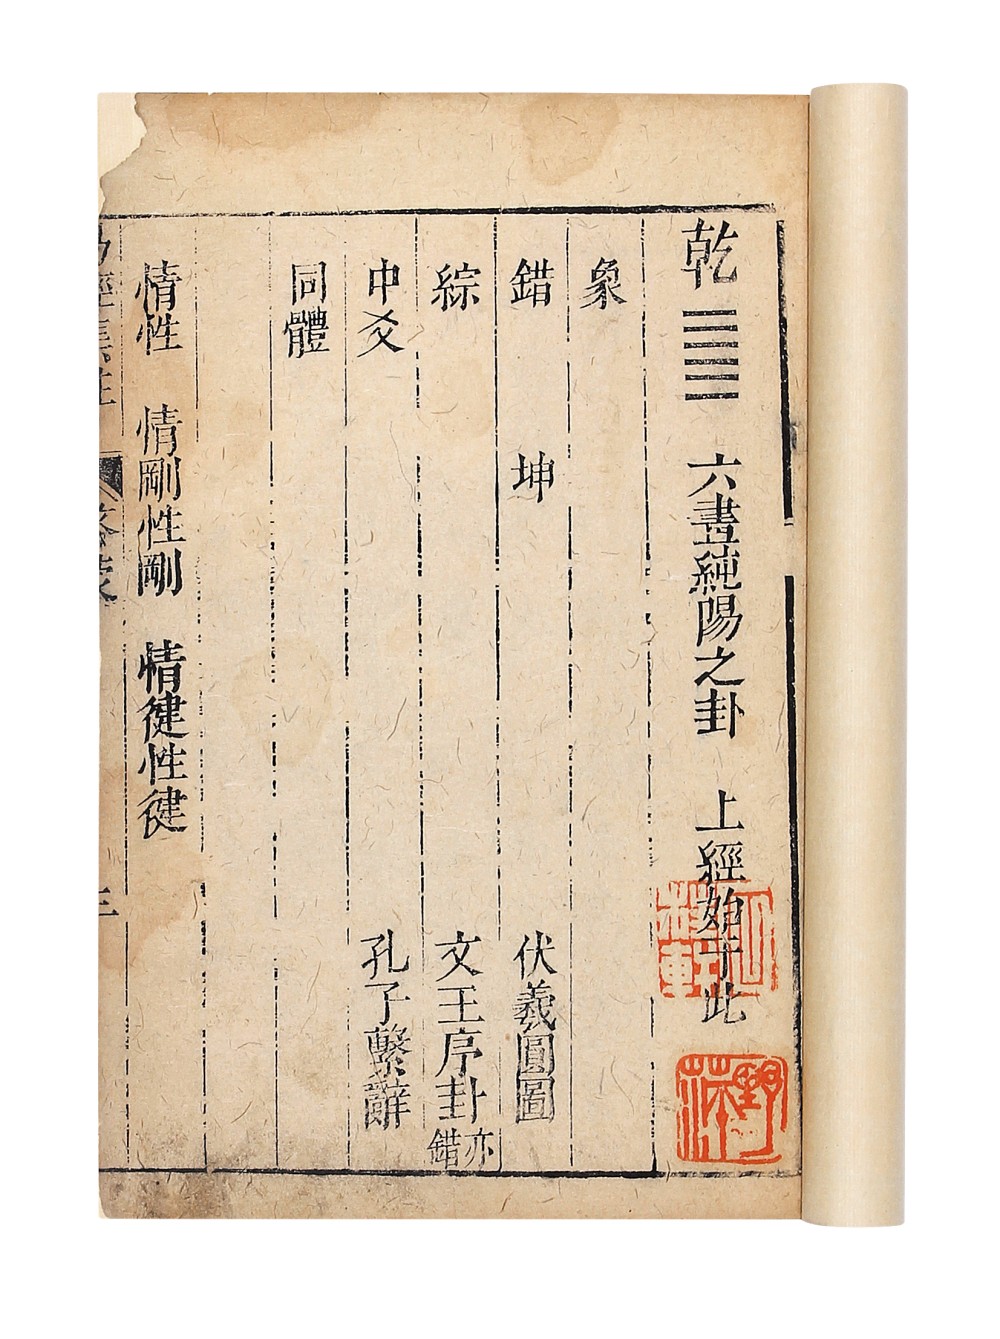 乾 ䷀ 六畫純陽之卦 上經始于此
象
錯 坤 伏羲圓圖
綜 文王序卦 亦錯
中爻 孔子繫辭
同體
情性 情剛性剛 情健性健
易經集註
三